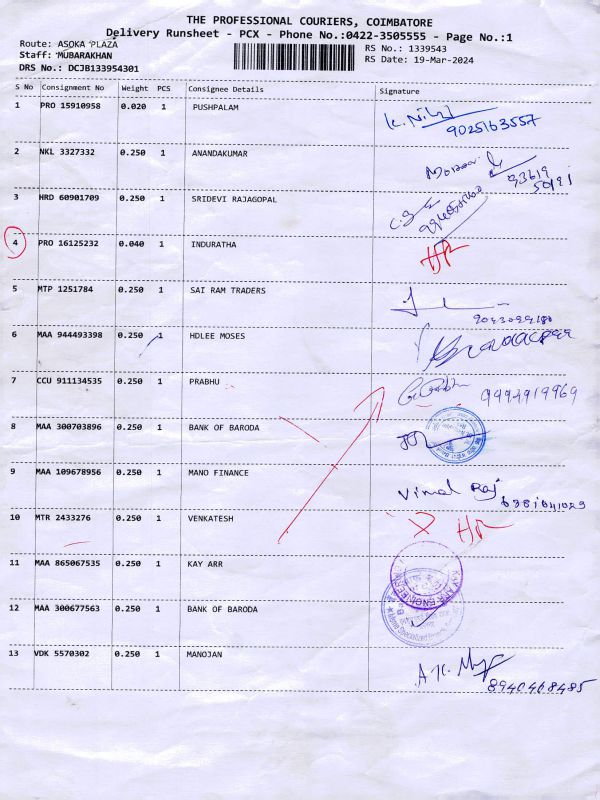 THE PROFESSIONAL COURIERS, COIMBATORE
Delivery Runsheet - PCX - Phone No.:0422-3505555 - Page No.:1
Route: ASOKA PLAZA
RS No.: 1339543
Staff: MUBARAKHAN
RS Date: 19-Mar-2024
DRS No.: DCJB133954301
S No Consignment No Weight PCS Consignee Details Signature
1 PRO 15910958 0.020 1 PUSHPALAM
9025163557
2 NKL 3327332 0.250 1 ANANDAKUMAR
3 HRD 60901709 0.250 1 SRIDEVI RAJAGOPAL
4 PRO 16125232 0.040 1 INDURATHA
5 MTP 1251784 0.250 1 SAI RAM TRADERS
6 MAA 944493398 0.250 1 HDLEE MOSES
7 CCU 911134535 0.250 1 PRABHU
8 MAA 300703896 0.250 1 BANK OF BARODA
9 MAA 109678956 0.250 1 MANO FINANCE
Vimal Raj
10 MTR 2433276 0.250 1 VENKATESH
11 MAA 865067535 0.250 1 KAY ARR
12 MAA 300677563 0.250 1 BANK OF BARODA
13 VDK 5570302 0.250 1 MANOJAN
8940468485